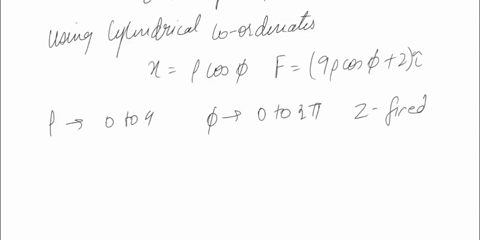 using Cylindrical co-ordinates
x = ρ cos φ F = (9ρ cos φ + 2) î
ρ → 0 to 4 φ → 0 to 2π z - fixed